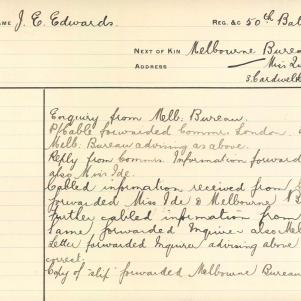 NAME J. E. Edwards.
REG. &C 50th Bat
NEXT OF KIN Melbourne Burea
ADDRESS Miss
3 Cardwell
Enquiry from Melb: Bureau.
P/Cable forwarded Commr. London.
Melb: Bureau advising as above.
Reply from Commr. Information forward
also Miss Ide.
Cabled information received from
forwarded Miss Ide & Melbourne
Further cabled information from
same forwarded Inquirer also Mel
Letter forwarded Inquirer advising above
correct.
Copy of "slip" forwarded Melbourne Bureau